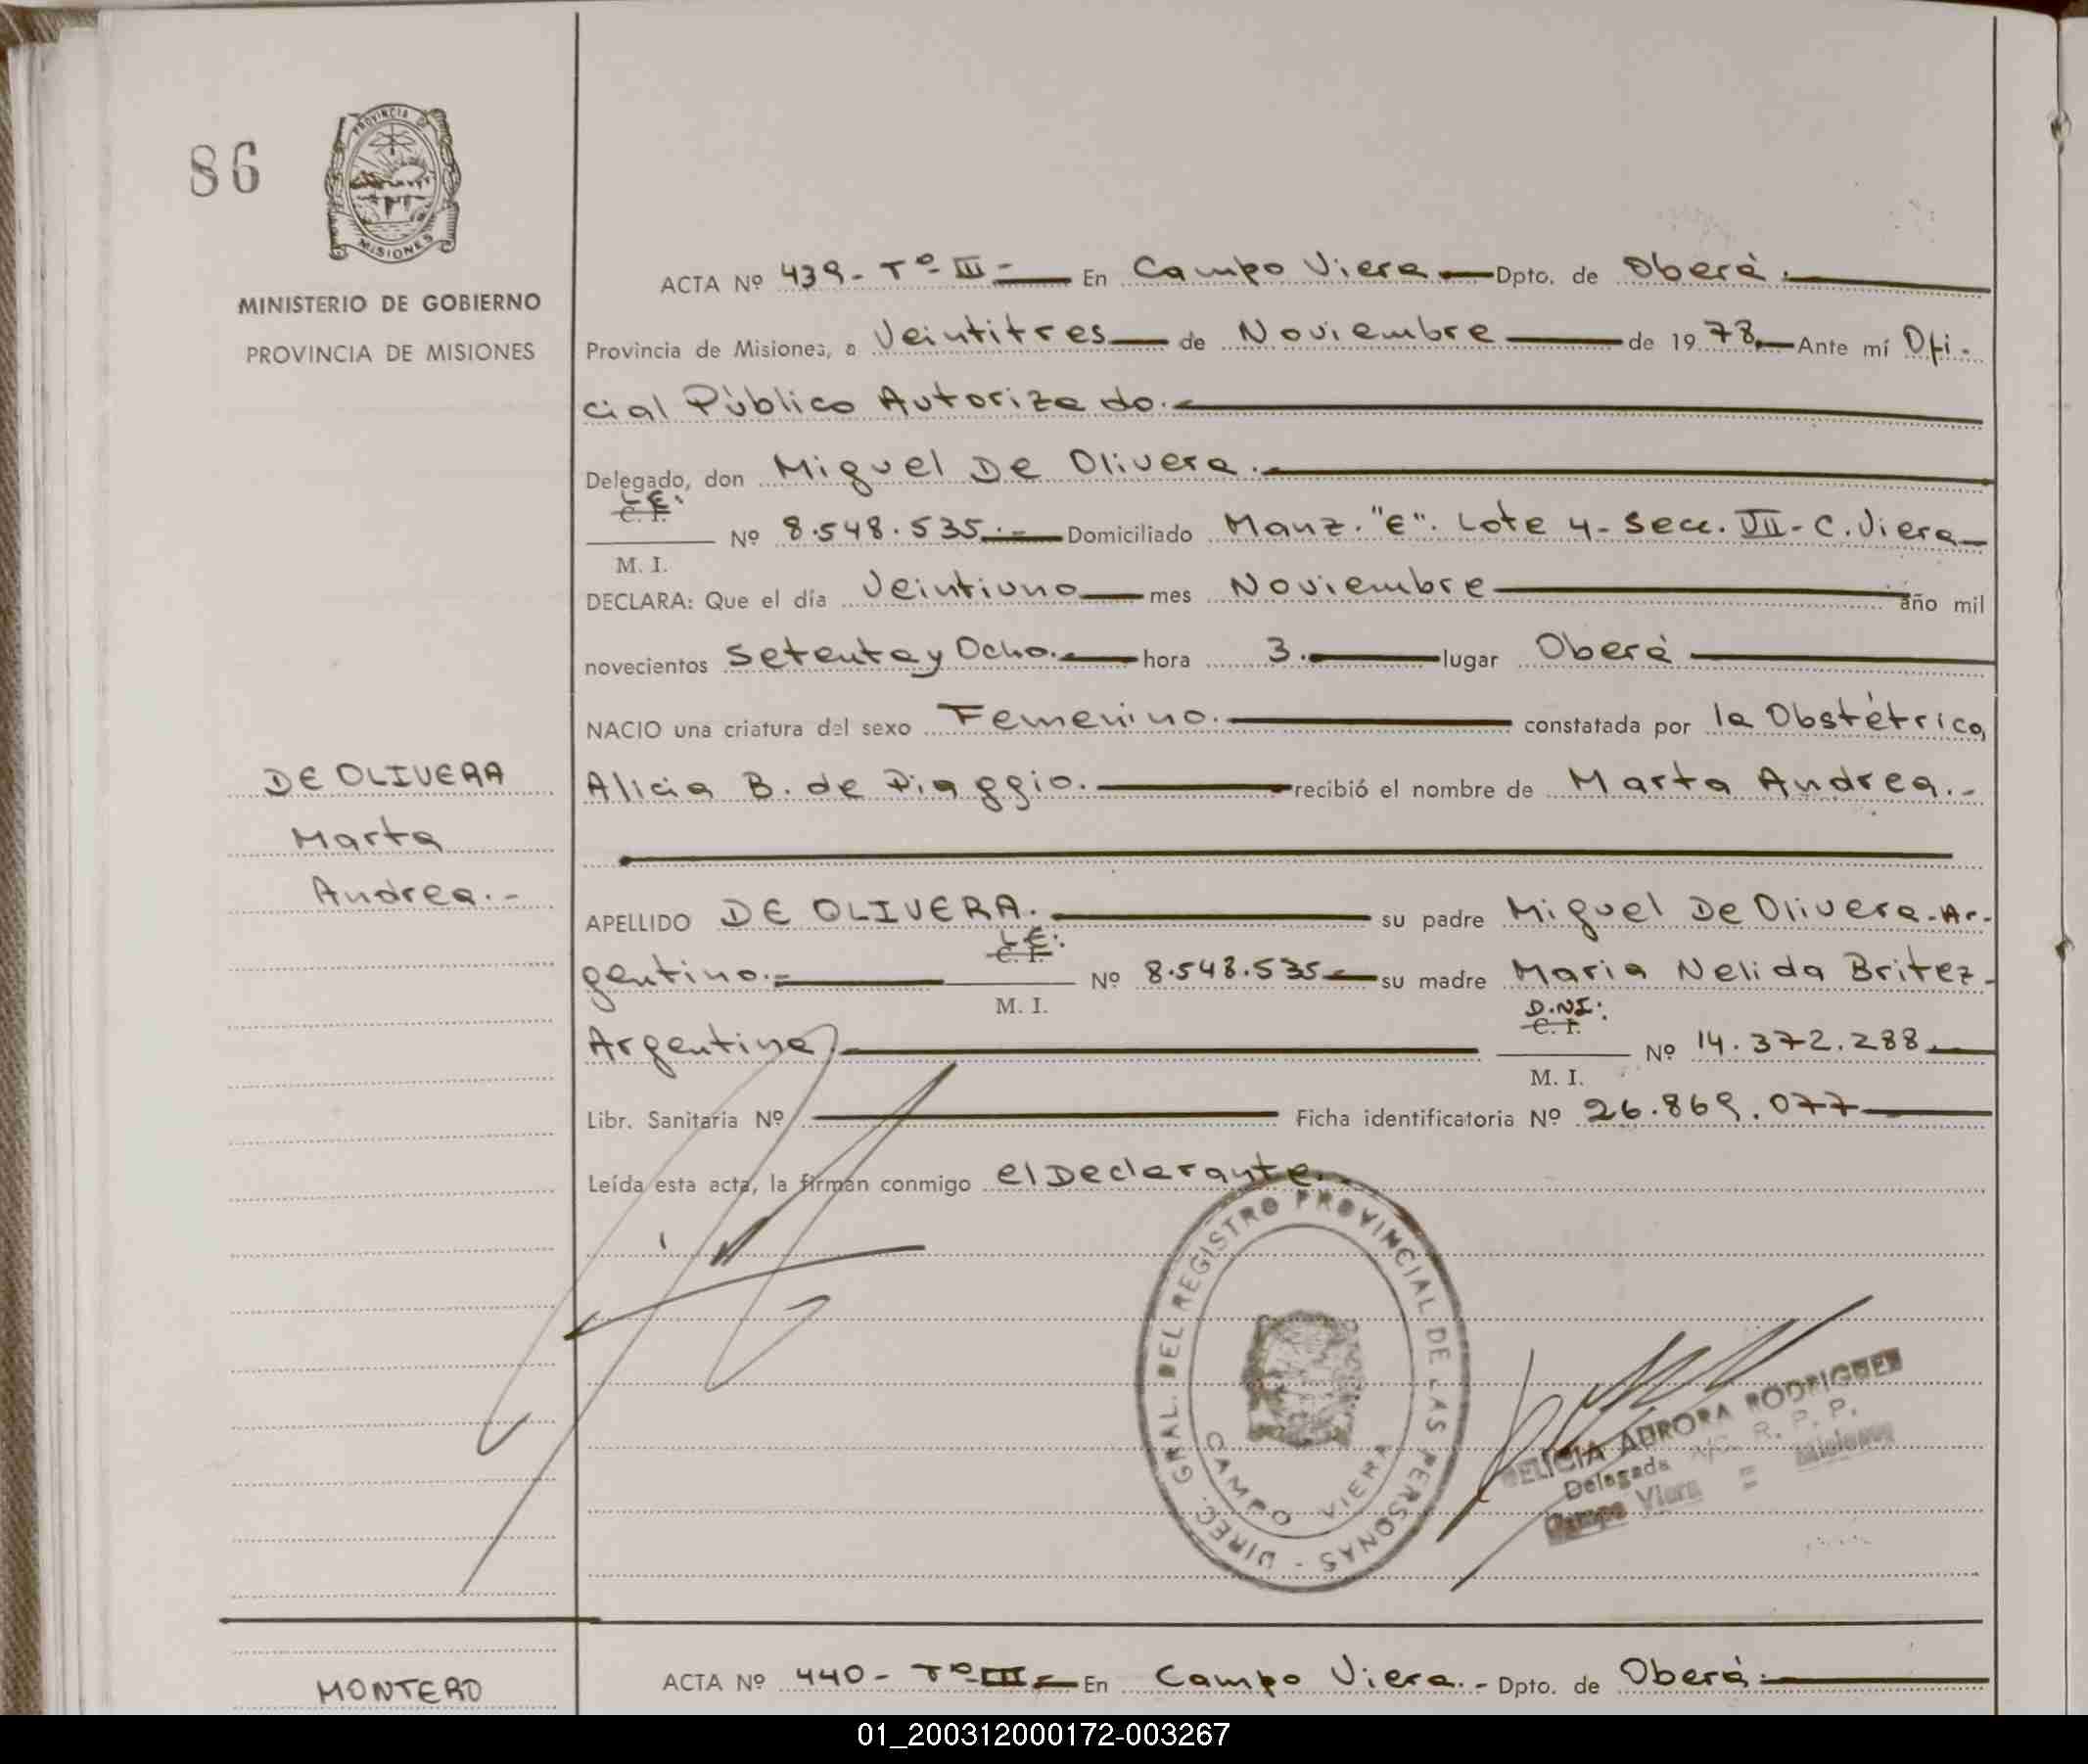 86
PROVINCIA DE
MISIONES
MINISTERIO DE GOBIERNO
PROVINCIA DE MISIONES
ACTA Nº 439- Tº- III- En Campo Viera Dpto. de Oberá.
Provincia de Misiones, a Veintitres de Noviembre de 1978.- Ante mí Ofi-
cial Público Autorizado.-
Delegado, don Miguel De Olivera.-
L E:
C. I.
Nº 8.548.535.- Domiciliado Manz. "E". Lote 4- Secc. VII- C. Viera
M. I.
DECLARA: Que el día Veintiuno mes Noviembre año mil
novecientos Setenta y Ocho.- hora 3.- lugar Oberá
NACIO una criatura del sexo Femenino.- constatada por la Obstétrica,
DE OLIVERA
Alicia B. de Piaggio.- recibió el nombre de Marta Andrea.-
Marta
Andrea.-
APELLIDO DE OLIVERA.- su padre Miguel De Olivera-Ar-
L E:
C. I.
gentino.- Nº 8.548.535- su madre Maria Nelida Britez-
M. I.
D.NI:
C. I.
Argentina.- Nº 14.372.288.-
M. I.
Libr. Sanitaria Nº Ficha identificatoria Nº 26.869.077
Leída esta acta, la firman conmigo el Declarante.
DIREC. GRAL. DEL REGISTRO PROVINCIAL DE LAS PERSONAS -
CAMPO VIERA
DELICIA AURORA RODRIGUEZ
Delegada A/C. R. P. P.
Campo Viera = Misiones
MONTERO
ACTA Nº 440- Tº- III- En Campo Viera.- Dpto. de Oberá.-
01_200312000172-003267